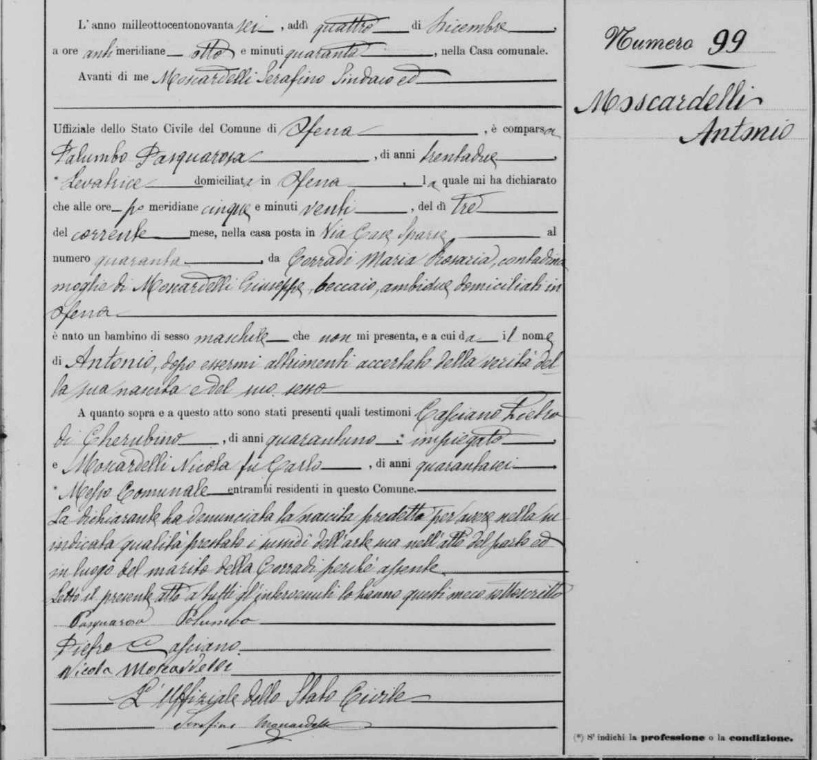 L'anno milleottocentonovanta sei, addì quattro di Dicembre,
a ore anti meridiane otto e minuti quaranta, nella Casa comunale.
Avanti di me Moscardelli Serafino Sindaco ed
Uffiziale dello Stato Civile del Comune di Ofena, è comparsa
Palumbo Pasquarosa, di anni trentadue,
* Levatrice domiciliata in Ofena, la quale mi ha dichiarato
che alle ore po meridiane cinque e minuti venti, del dì tre
del corrente mese, nella casa posta in Via Case Sparse al
numero quaranta, da Corradi Maria Rosaria, contadina
moglie di Moscardelli Giuseppe, beccaio, ambidue domiciliati in
Ofena
è nato un bambino di sesso maschile che non mi presenta, e a cui da il nome
di Antonio, dopo essermi altrimenti accertato della verità del
la sua nascita e del suo sesso
A quanto sopra e a questo atto sono stati presenti quali testimoni Casciano Pietro
di Cherubino, di anni quarantuno : impiegato,
e Moscardelli Nicola fu Carlo, di anni quarantasei
* Messo Comunale entrambi residenti in questo Comune.
La dichiarante ha denunciata la nascita predetta per avere nella su
indicata qualità prestato i sussidi dell'arte sua nell'atto del parto ed
in luogo del marito della Corradi perché assente.
Letto il presente atto a tutti gl'intervenuti lo hanno questi meco sottoscritto
Pasquarosa Palumbo
Pietro Casciano
Nicola Moscardelli
L'Uffiziale dello Stato Civile
Serafino Moscardelli
Numero 99
Moscardelli
Antonio
(*) S'indichi la professione o la condizione.